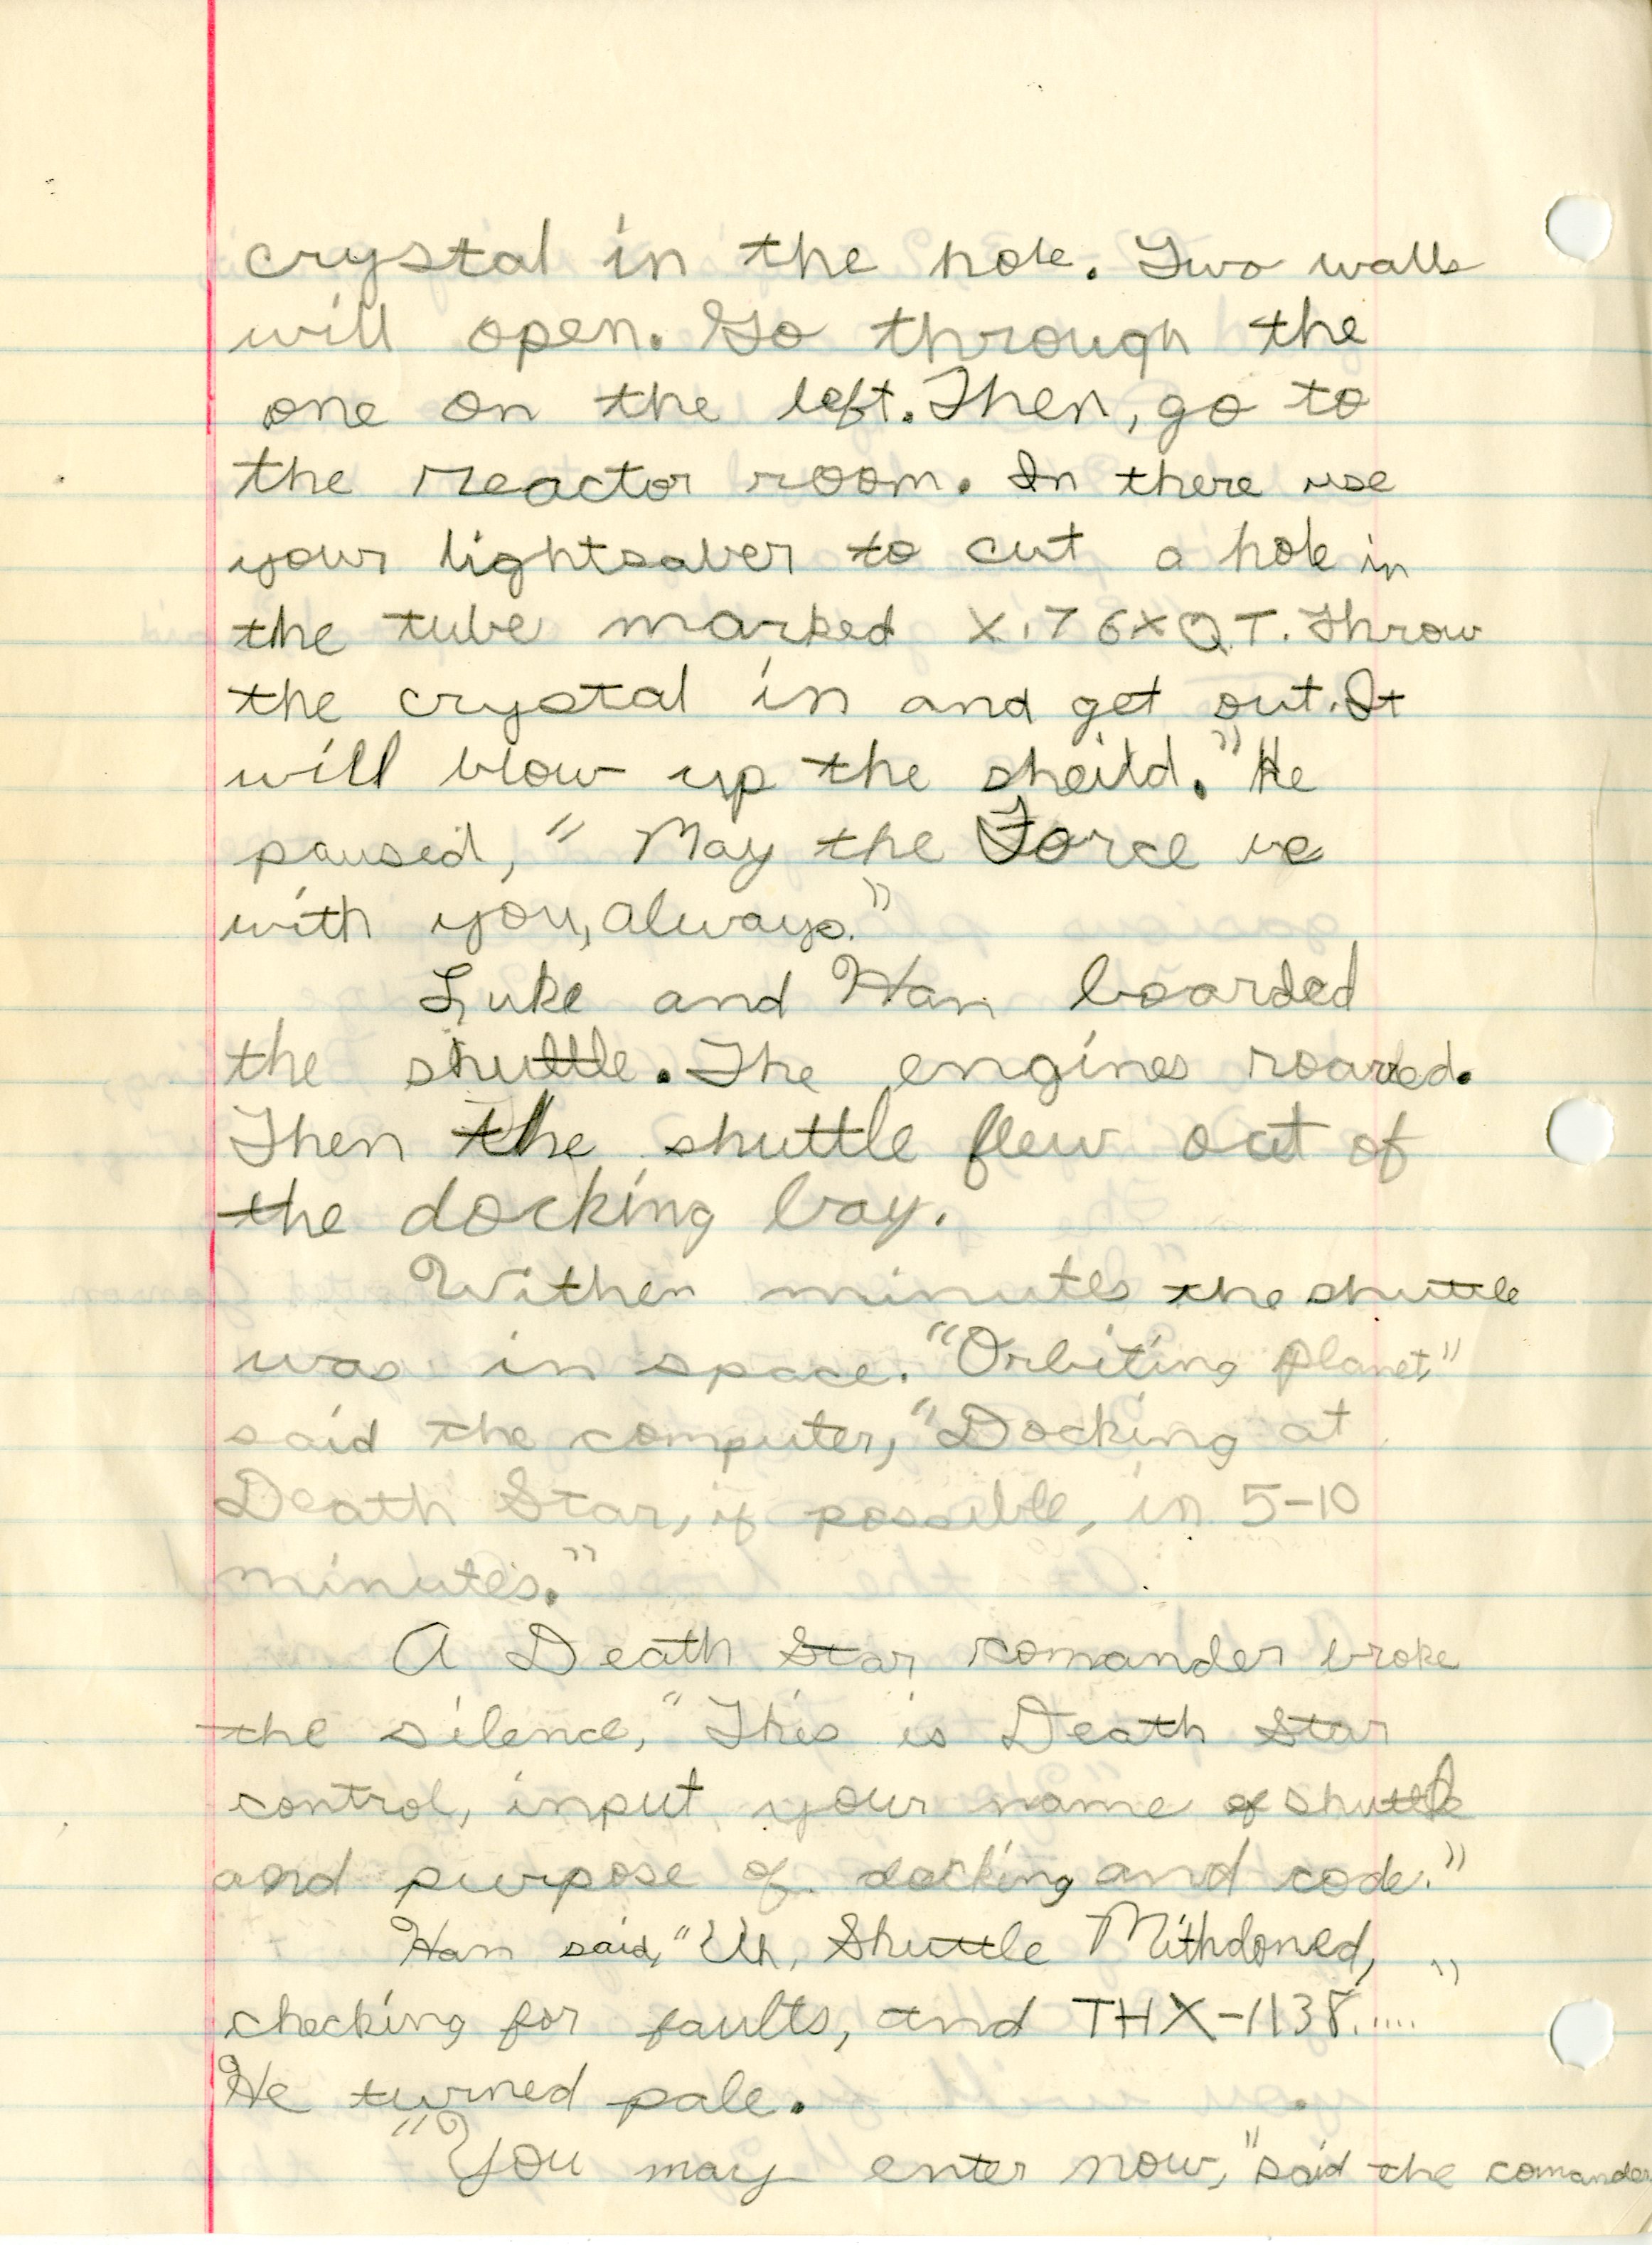 crystal in the hole. Two walls
will open. Go through the
one on the left. Then, go to
the reactor room. In there use
your lightsaber to cut a hole in
the tube marked X.76XQT. Throw
the crystal in and get out. It
will blow up the sheild." He
paused, "May the Force be
with you, always."
Luke and Han boarded
the shuttle. The engines roared.
Then the shuttle flew out of
the docking bay.
Within minutes the shuttle
was in space. "Orbiting planet,"
said the computer, "Docking at
Death Star, if possible, in 5-10
minutes."
A Death Star comander broke
the silence, "This is Death Star
control, input your name of shuttle
and purpose of docking and code."
Han said, "Uh, Shuttle Mithdoned,
checking for faults, and THX-1138....."
He turned pale.
"You may enter now," said the comander